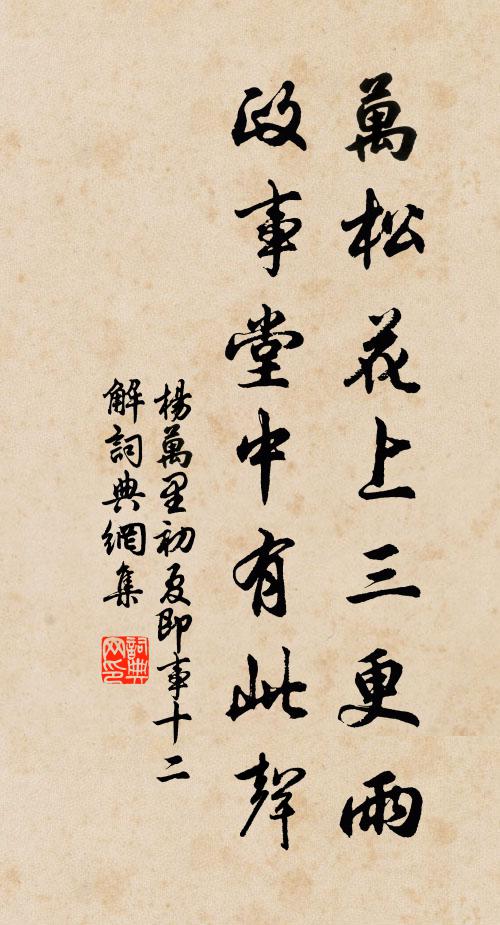 萬松花上三更雨
政事堂中有此聲
楊萬里初夏即事十二
解詞典網集
詞典網印